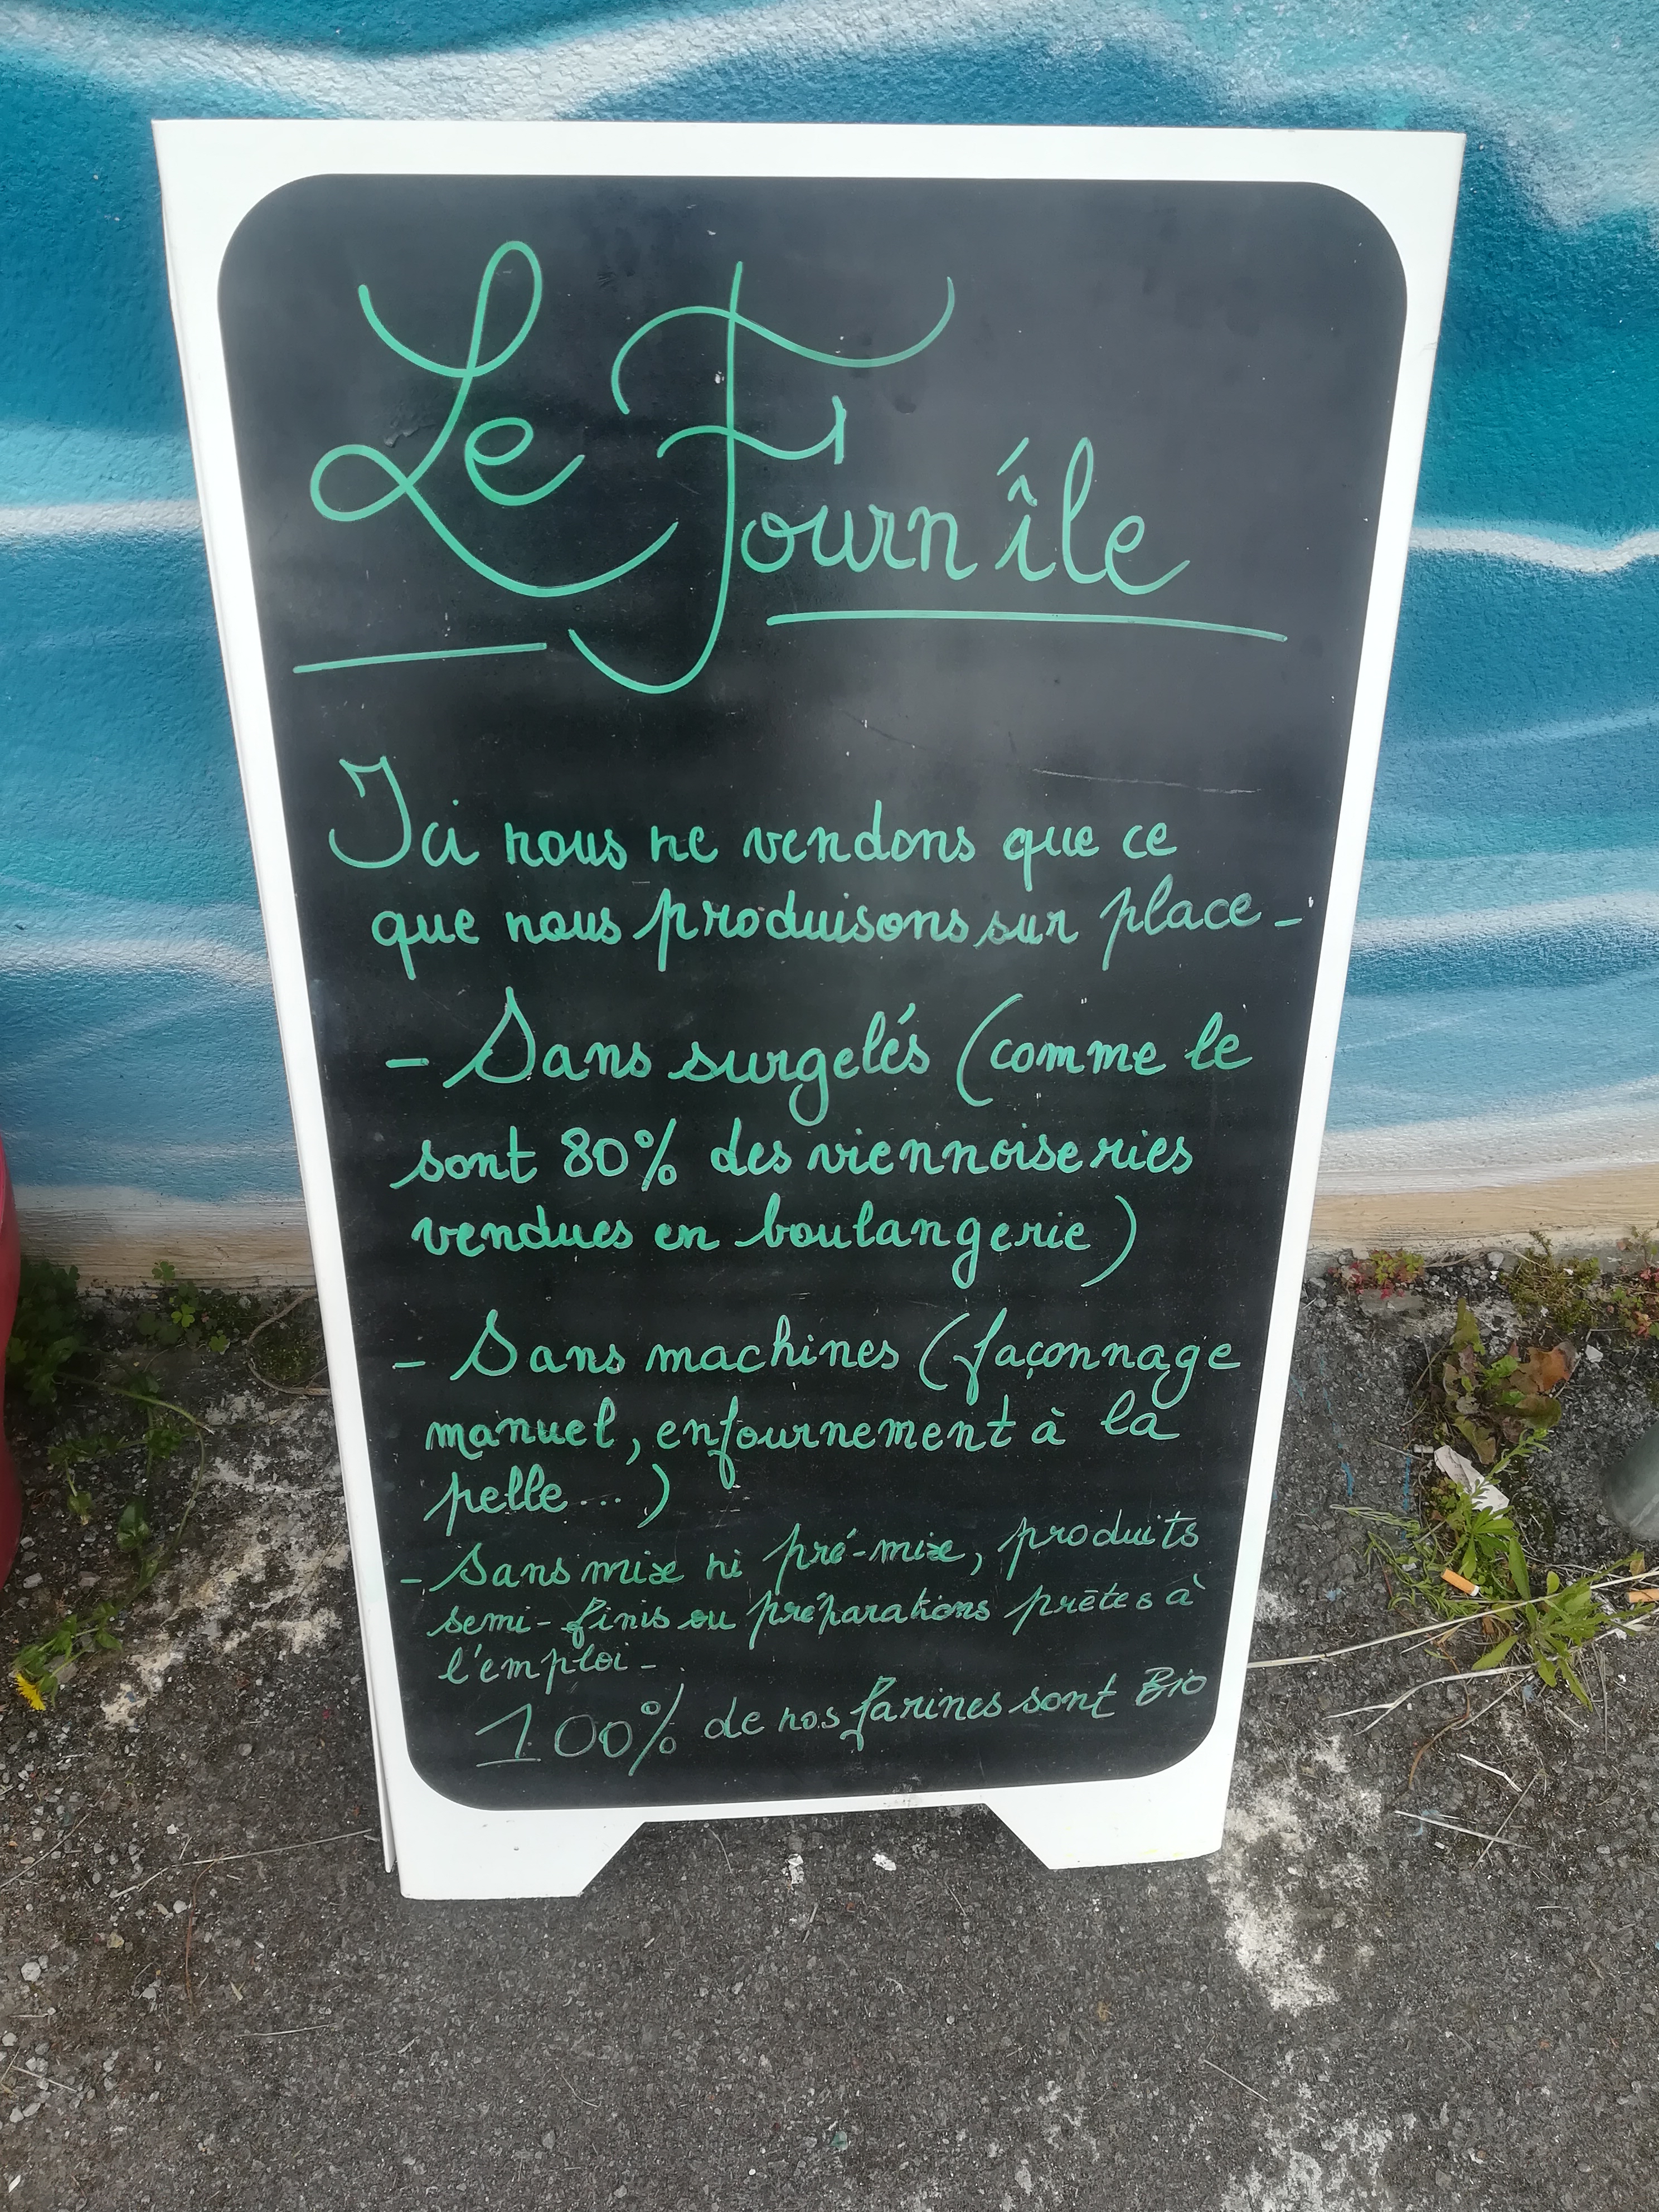 Le Fournîle
Ici nous ne vendons que ce
que nous produisons sur place -
- Sans surgelés (comme le
sont 80% des viennoiseries
vendues en boulangerie)
- Sans machines (façonnage
manuel, enfournement à la
pelle...)
- Sans mix ni pré-mix, produits
semi-finis ou préparations prêtes à
l'emploi -
100% de nos farines sont Bio